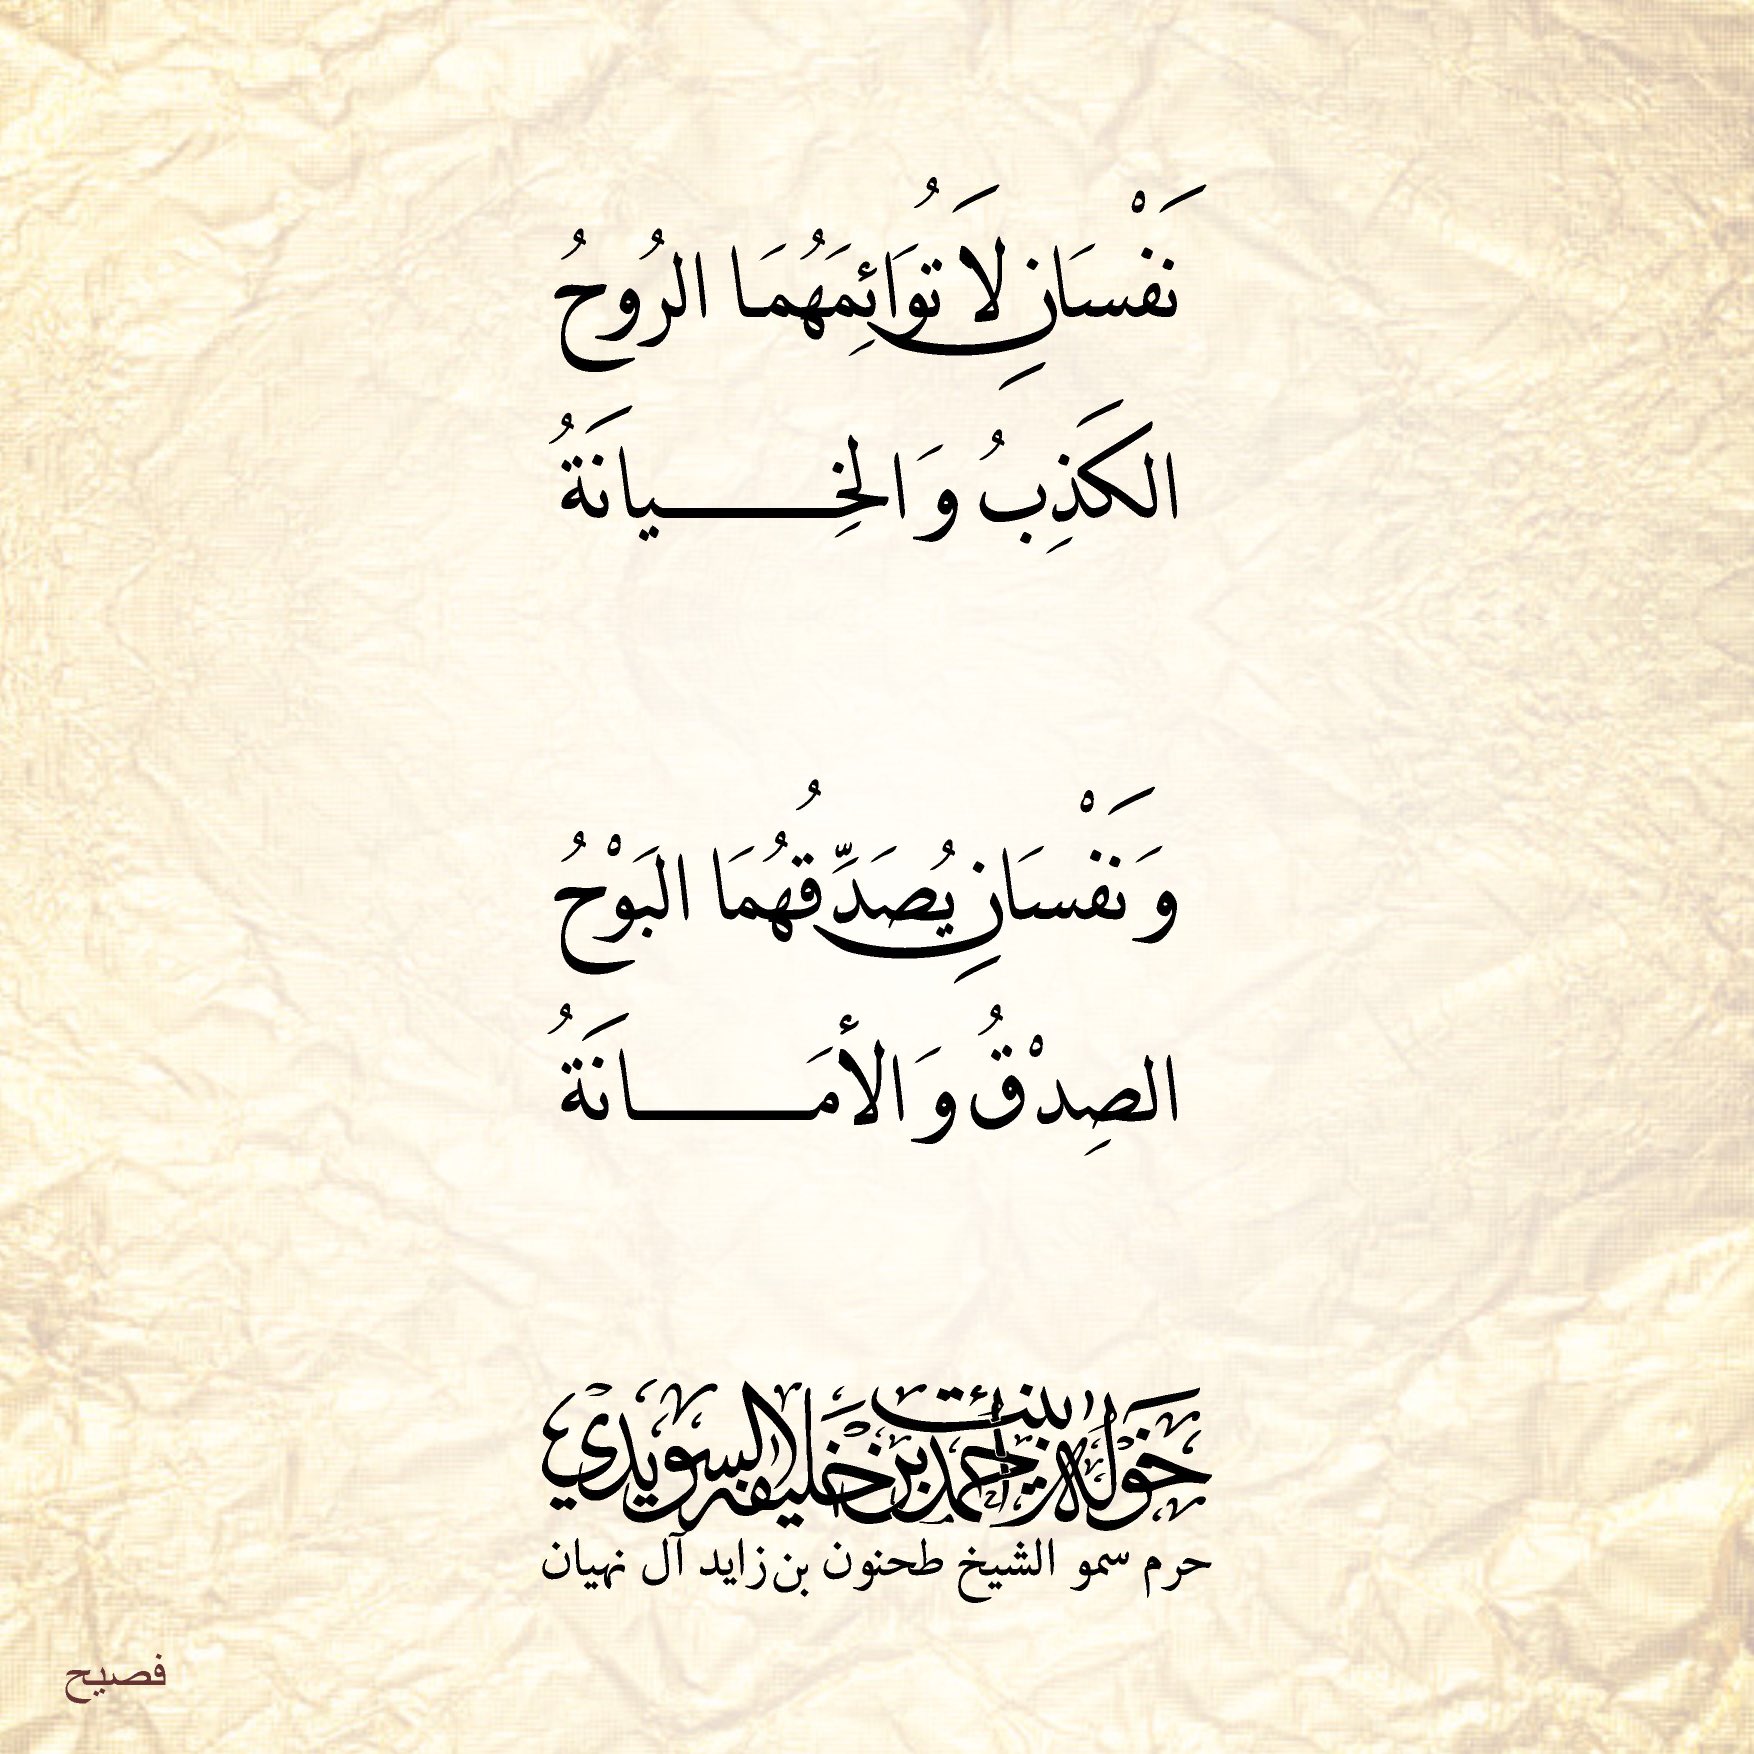 نَفْسَانِ لاَ تُوَائِمَهُمَا الرُوحُ
الكَذِبُ وَ الخِـــــيانَةُ
وَ نَفْسَانِ يُصَدِّقُهُمَا البَوْحُ
الصِدْقُ وَ الأمَـــــانَةُ
خولة بنت أحمد بن خليفه السويدي
حرم سمو الشيخ طحنون بن زايد آل نهيان
فصيح